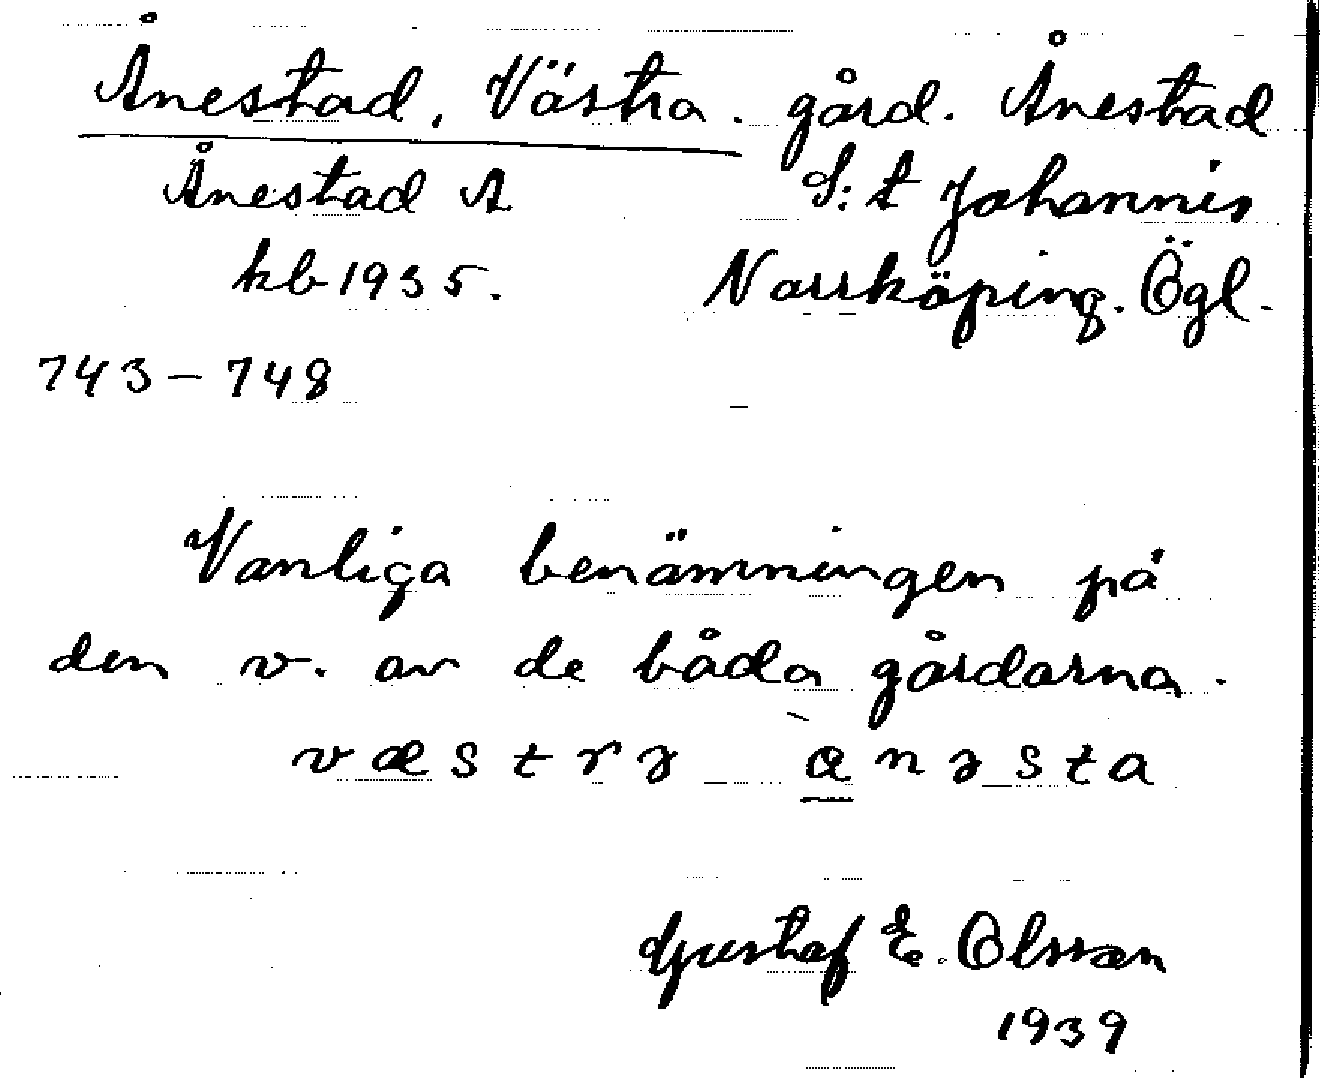 Ånestad, Västra. gård. Ånestad
Ånestad A S:t Johannis
kb 1935. Norrköping. Ögl.
743–748
Vanliga benämningen på
den v. av de båda gårdarna.
væstrə ɑnəsta
Gustaf E. Olsson
1939